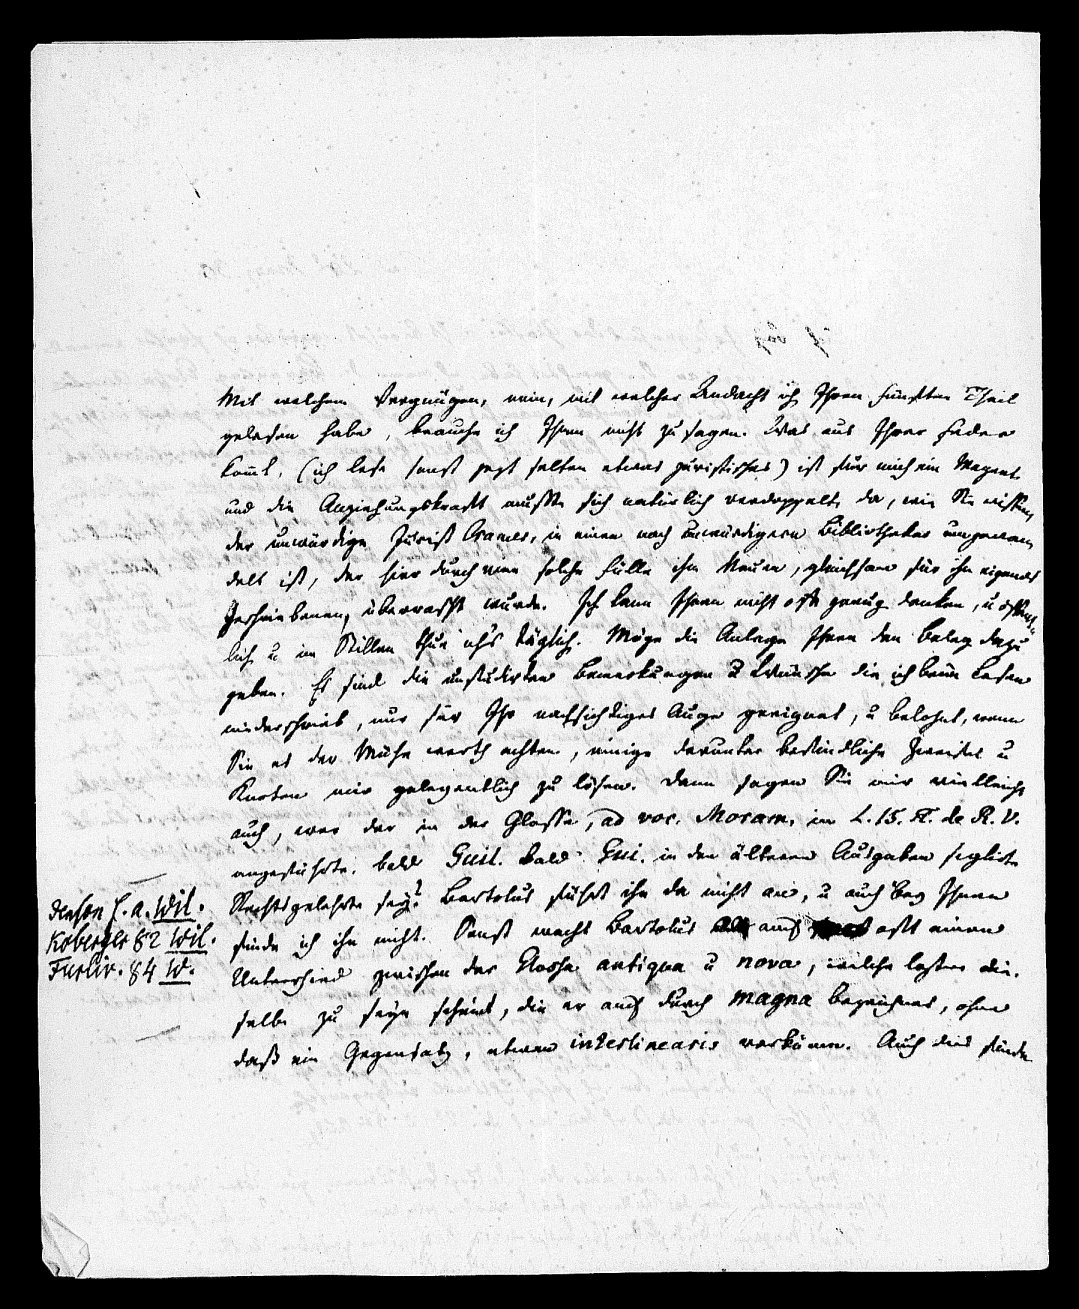 Mit welchem Vergnügen, nein, mit welcher Andacht ich Ihren fünften Theil
gelesen habe, brauche ich Ihnen nicht zu sagen. Was aus Ihrer Feder
komt (ich lese sonst jezt selten etwas juristisches) ist für mich ein Magnet
und die Anziehungskraft mußte sich natürlich verdoppelt, da, wie Sie wissen,
der unwürdige Jurist Cramer, in einen noch unwürdigern Bibliothekar umgewan
delt ist, der hier durch eine solche Fülle ihm Neuen, gleichsam für ihn eigends
Geschriebenen, überrascht wurde. Ich kann Ihnen nicht oft genug danken, u öffent
lich u im Stillen thue ich's täglich. Möge die Anlage Ihnen den Beleg dazu
geben. Es sind die unstudirten Bemerkungen u Wünsche die ich beim Lesen
niederschrieb, nur für Ihr nachsichtiges Auge geeignet, u belohnt, wenn
Sie es der Mühe werth achten, einige darunter befindliche Zweifel u
Knoten mir gelegentlich zu lösen. Dann sagen Sie mir vielleicht
auch, wer der in der Glosse, ad voc. Moram, in L. 15. π. de R. V.
angeführte, bald Guil. bald Gui. in den älteren Ausgaben
Rechtsgelehrte sey? Bartolus führt ihn da nicht an, u auch bey Ihnen
finde ich ihn nicht. Sonst macht Bartolus auch oft einen
Unterschied zwischen der Glossa antiqua u nova, welche leztere die
selbe zu seyn scheint, die er auch durch magna bezeichnet, ohne
daß ein Gegensatz, etwan interlinearis vorkäme. Auch dies finde
Jenson s. a. Wil.
Koberger 82 Wil.
84 W.